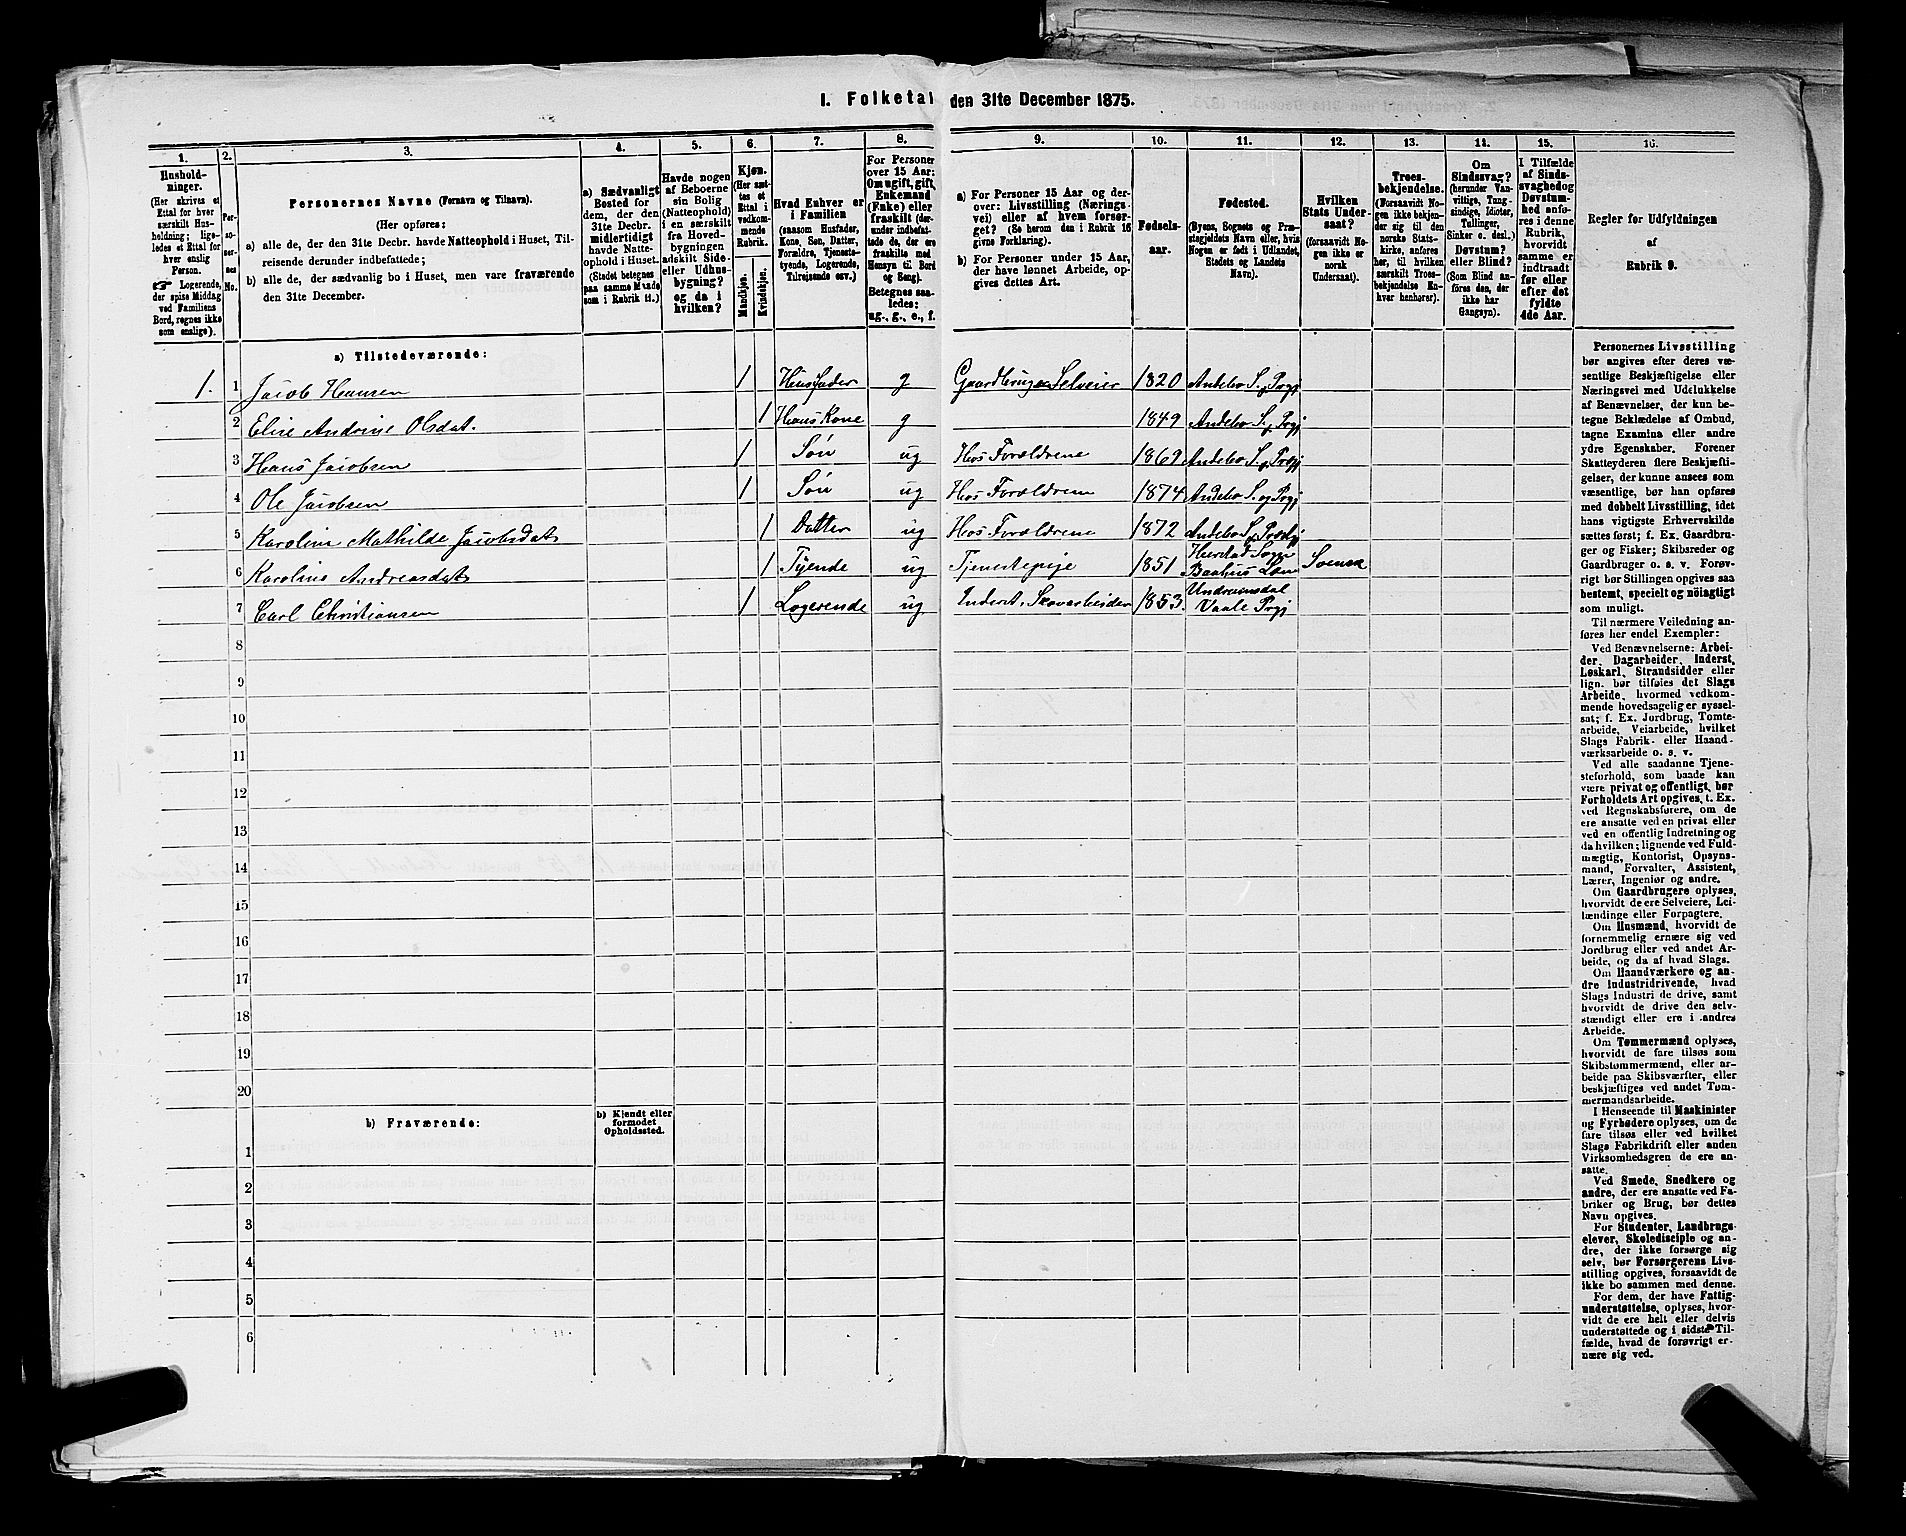 I. Folketal den 31te December 1875.
1. 2. 3. 4. 5. 6. 7. 8. 9. 10. 11. 12. 13. 14. 15. 16.
Husholdninger.
(Her skrives et
Ettal for hver
særskilt Husholdning; ligeledes
et Ettal for
hver enslig
Person.
☞ Logerende,
der spise Middag
ved Familiens
Bord, regnes ikke
som enslige).
Personernes No.
Personernes Navne (Fornavn og Tilnavn).
(Her opføres:
a) alle de, der den 31te Decbr. havde Natteophold i Huset, Tilreisende
derunder indbefattede;
b) alle de, der sædvanlig bo i Huset, men vare fraværende
den 31te December.
a) Sædvanligt
Bosted for
dem, der den
31te Decbr.
midlertidigt
havde Natteophold
i Huset.
(Stedet betegnes
paa samme Maade
som i Rubrik 11.)
Havde nogen
af Beboerne
sin Bolig
(Natteophold)
i en særskilt
fra Hovedbygningen
adskilt Side-
eller Udhusbygning?
og da i
hvilken?
Kjøn.
(Her sættes
et
Ettal i
vedkommende
Rubrik.
Mandkjøn.
Kvindekjøn.
Hvad Enhver er
i Familien
(saasom Husfader,
Kone, Søn, Datter,
Forældre, Tjenestetyende,
Logerende,
Tilreisende osv.)
For Personer
over 15 Aar:
Om ugift, gift,
Enkemand
(Enke) eller
fraskilt (derunder
indbefattede
de, der ere
fraskilte med
Hensyn til Bord
og Seng).
Betegnes saaledes:
ug., g., e., f.
a) For Personer 15 Aar og derover:
Livsstilling (Næringsvei)
eller af hvem forsørget?
(Se herom den i Rubrik 16
givne Forklaring).
b) For Personer under 15 Aar,
der have lønnet Arbeide, opgives
dettes Art.
Fødselsaar.
Fødested.
(Byens, Sognets og Præstegjeldets
Navn eller, hvis
Nogen er født i Udlandet,
Stedets og Landets
Navn).
Hvilken
Stats Undersaat?
(forsaavidt Nogen
ikke er
norsk
Undersaat).
Troesbekjendelse.
(Forsaavidt Nogen
ikke bekjender
sig til den
norske Statskirke,
anføres
her, til hvilken
særskilt Troesbekjendelse
Enhver
henhører).
Om
Sindssvag?
(herunder Vanvittige,
Tungsindige,
Idioter,
Tullinger,
Sinker o. desl.)
Døvstum?
eller Blind?
(Som Blind anføres
den, der
ikke har
Gangsyn).
I Tilfælde
af Sindssvaghed
og
Døvstumhed
anføres
i denne
Rubrik,
hvorvidt
samme er
indtraadt
før eller
efter det
fyldte
4de Aar.
Regler for Udfyldningen
af
Rubrik 9.
a) Tilstedeværende:
1. 1 Jacob Hansen 1 Husfader g Gaardbruger Selveier 1820 Andebo S. og Prgj
2 Elise Andrine Olsdat. 1 Hans Kone g 1849 Andebo S. og Prgj
3 Hans Jacobsen 1 Søn ug Hos Forældrene 1869 Andebo S. og Prgj
4 Ole Jacobsen 1 Søn ug Hos Forældrene 1874 Andebo S. og Prgj
5 Karoline Mathilde Jacobsdat 1 Datter ug Hos Forældrene 1872 Andebo S. og Prgj
6 Karoline Andreasdat 1 Tyende ug Tjenestepige 1851 Sogn Baahus Len Svensk
7 Carl Christiansen 1 Logerende ug Inderst, Skovarbeider 1853 Undrumsdal Vaale Prgj
8
9
10
11
12
13
14
15
16
17
18
19
20
b) Fraværende:
b) Kjendt eller
formodet
Opholdssted.
1
2
3
4
5
6
Personernes Livsstilling
bør angives efter deres væsentlige
Beskjæftigelse eller
Næringsvei med Udelukkelse
af Benævnelser, der kun betegne
Beklædelse af Ombud,
tagne Examina eller andre
ydre Egenskaber. Forener
Skatteyderen flere Beskjæftigelser,
der kunne ansees som
væsentlige, bør han opføres
med dobbelt Livsstilling, idet
hans vigtigste Erhvervskilde
sættes først; f. Ex. Gaardbruger
og Fisker; Skibsreder og
Gaardbruger o. s. v. Forøvrigt
bør Stillingen opgives saa
bestemt, specielt og nöiagtigt
som muligt.
Til nærmere Veiledning anføres
her endel Exempler:
Ved Benævnelserne: Arbeider,
Dagarbeider, Inderst,
Løskarl, Strandsidder eller
lign. bør tilføies det Slags
Arbeide, hvormed vedkommende
hovedsagelig er sysselsat;
f. Ex. Jordbrug, Tomtearbeide,
Veiarbeide, hvilket
Slags Fabrik- eller Haandværksarbeide
o. s. v.
Ved alle saadanne Tjenesteforhold,
som baade kan
være privat og offentligt, bør
Forholdets Art opgives, t. Ex.
ved Regnskabsførere, om de
ere ansatte ved en privat eller
ved en offentlig Indretning og
da hvilken; lignende ved Fuldmægtig,
Kontorist, Opsynsmand,
Forvalter, Assistent,
Lærer, Ingeniør og andre.
Om Gaardbrugere oplyses,
hvorvidt de ere Selveiere, Leilændinge
eller Forpagtere.
Om Husmænd, hvorvidt de
fornemmelig ernære sig ved
Jordbrug eller ved andet Arbeide,
og da af hvad Slags.
Om Haandværkere og andre
Industridrivende, hvad
Slags Industri de drive, samt
hvorvidt de drive den selvstændigt
eller ere i andres
Arbeide.
Om Tømmermænd oplyses,
hvorvidt de fare tilsøs som
Skibstømmermænd, eller arbeide
paa Skibsværfter, eller
beskjæftiges ved andet Tømmermandsarbeide.
I Henseende til Maskinister
og Fyrbødere oplyses, om de
fare tilsøs eller ved hvilket
Slags Fabrikdrift eller anden
Virksomhedsgren de ere ansatte.
Ved Smede, Snedkere og
andre, der ere ansatte ved Fabriker
og Brug, bør dettes
Navn opgives.
For Studenter, Landbrugselever,
Skoledisciple og andre,
der ikke forsørge sig
selv, bør Forsørgerens Livsstilling
opgives, forsaavidt de
ikke bo sammen med denne.
For dem, der have Fattigunderstøttelse,
oplyses, hvorvidt
de ere helt eller delvis
understøttede og i sidste Tilfælde,
hvad de forøvrigt ernære
sig ved.